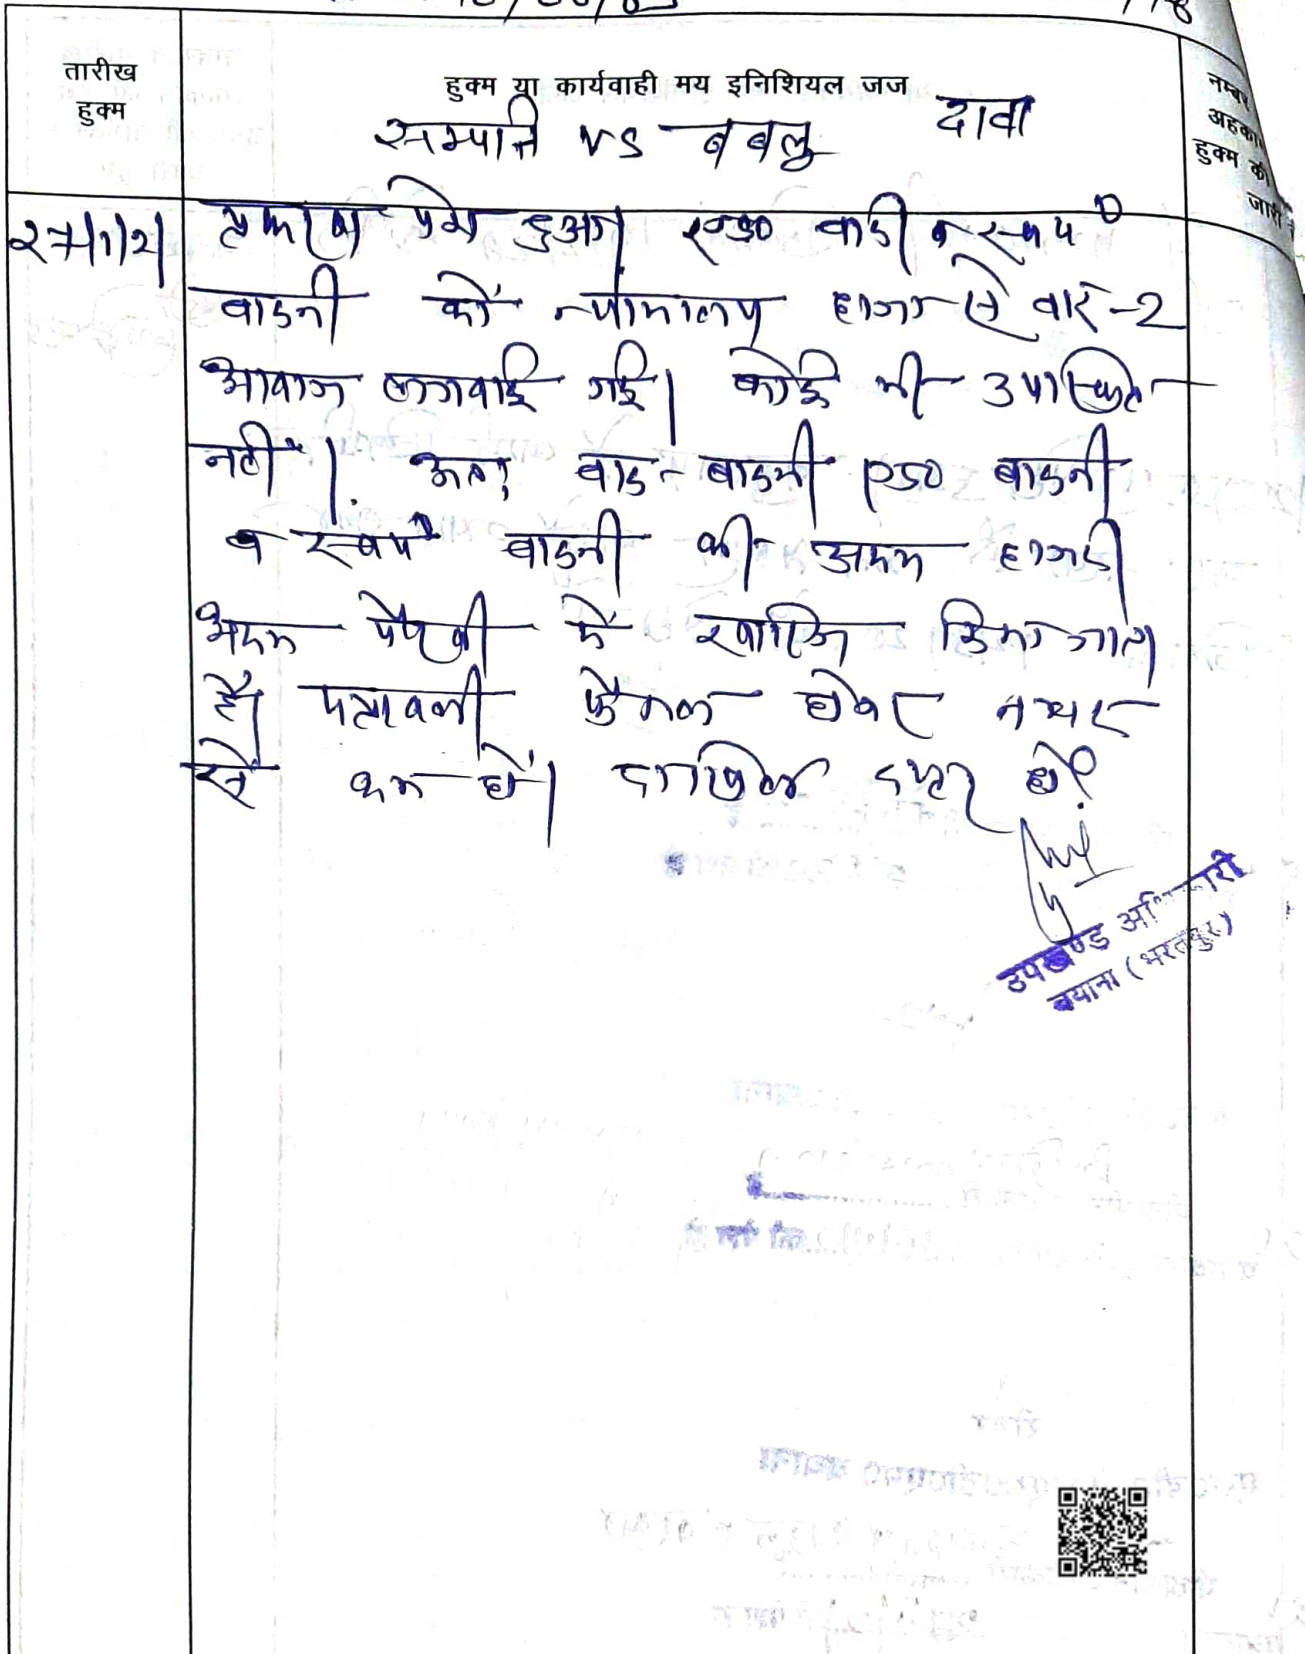 तारीख
हुक्म
हुक्म या कार्यवाही मय इनिशियल जज
नम्बर
अहकाम
हुक्म की
जारी
सम्पत्ति vs बबलू दावा
27/1/21
पत्रावली पेश हुआ। एड० वादी व स्वयं
वादनी को न्यायालय हाजा से बार-2
आवाज लगवाई गई। कोई भी उपस्थित
नहीं। अतः वाद वादनी एड० वादनी
व स्वयं वादनी की अदम हाजरी
अदम पैरवी में खारिज किया जाता
है। पत्रावली फैसल होकर नम्बर
से कम हो। दाखिल दफ्तर हो।
उपखण्ड अधिकारी
बयाना (भरतपुर)